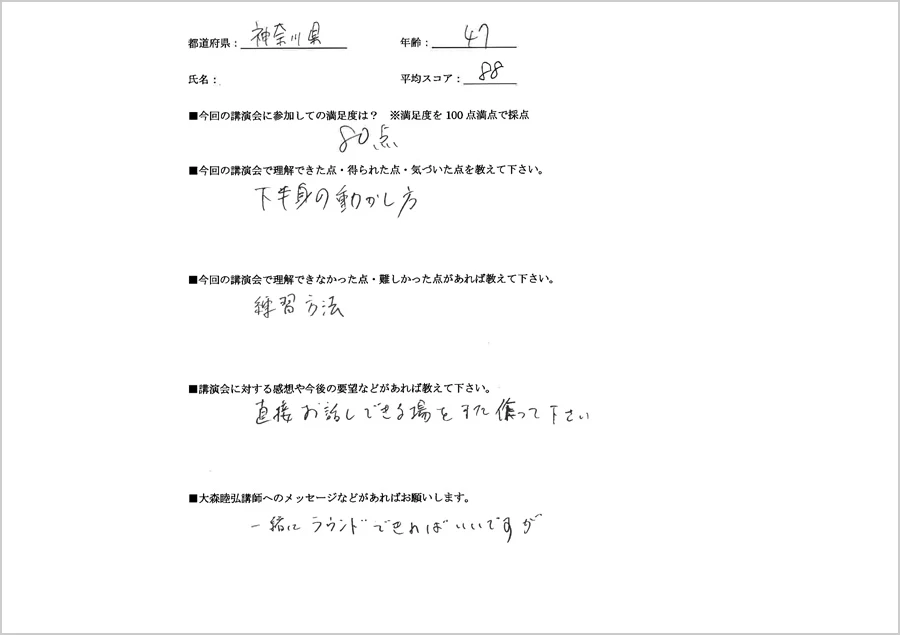 都道府県：神奈川県 年齢：47
氏名： 平均スコア：88
■今回の講演会に参加しての満足度は？ ※満足度を100点満点で採点
80点
■今回の講演会で理解できた点・得られた点・気づいた点を教えて下さい。
下半身の動かし方
■今回の講演会で理解できなかった点・難しかった点があれば教えて下さい。
練習方法
■講演会に対する感想や今後の要望などがあれば教えて下さい。
直接お話しできる場をまた作って下さい
■大森睦弘講師へのメッセージなどがあればお願いします。
一緒にラウンドできればいいですが